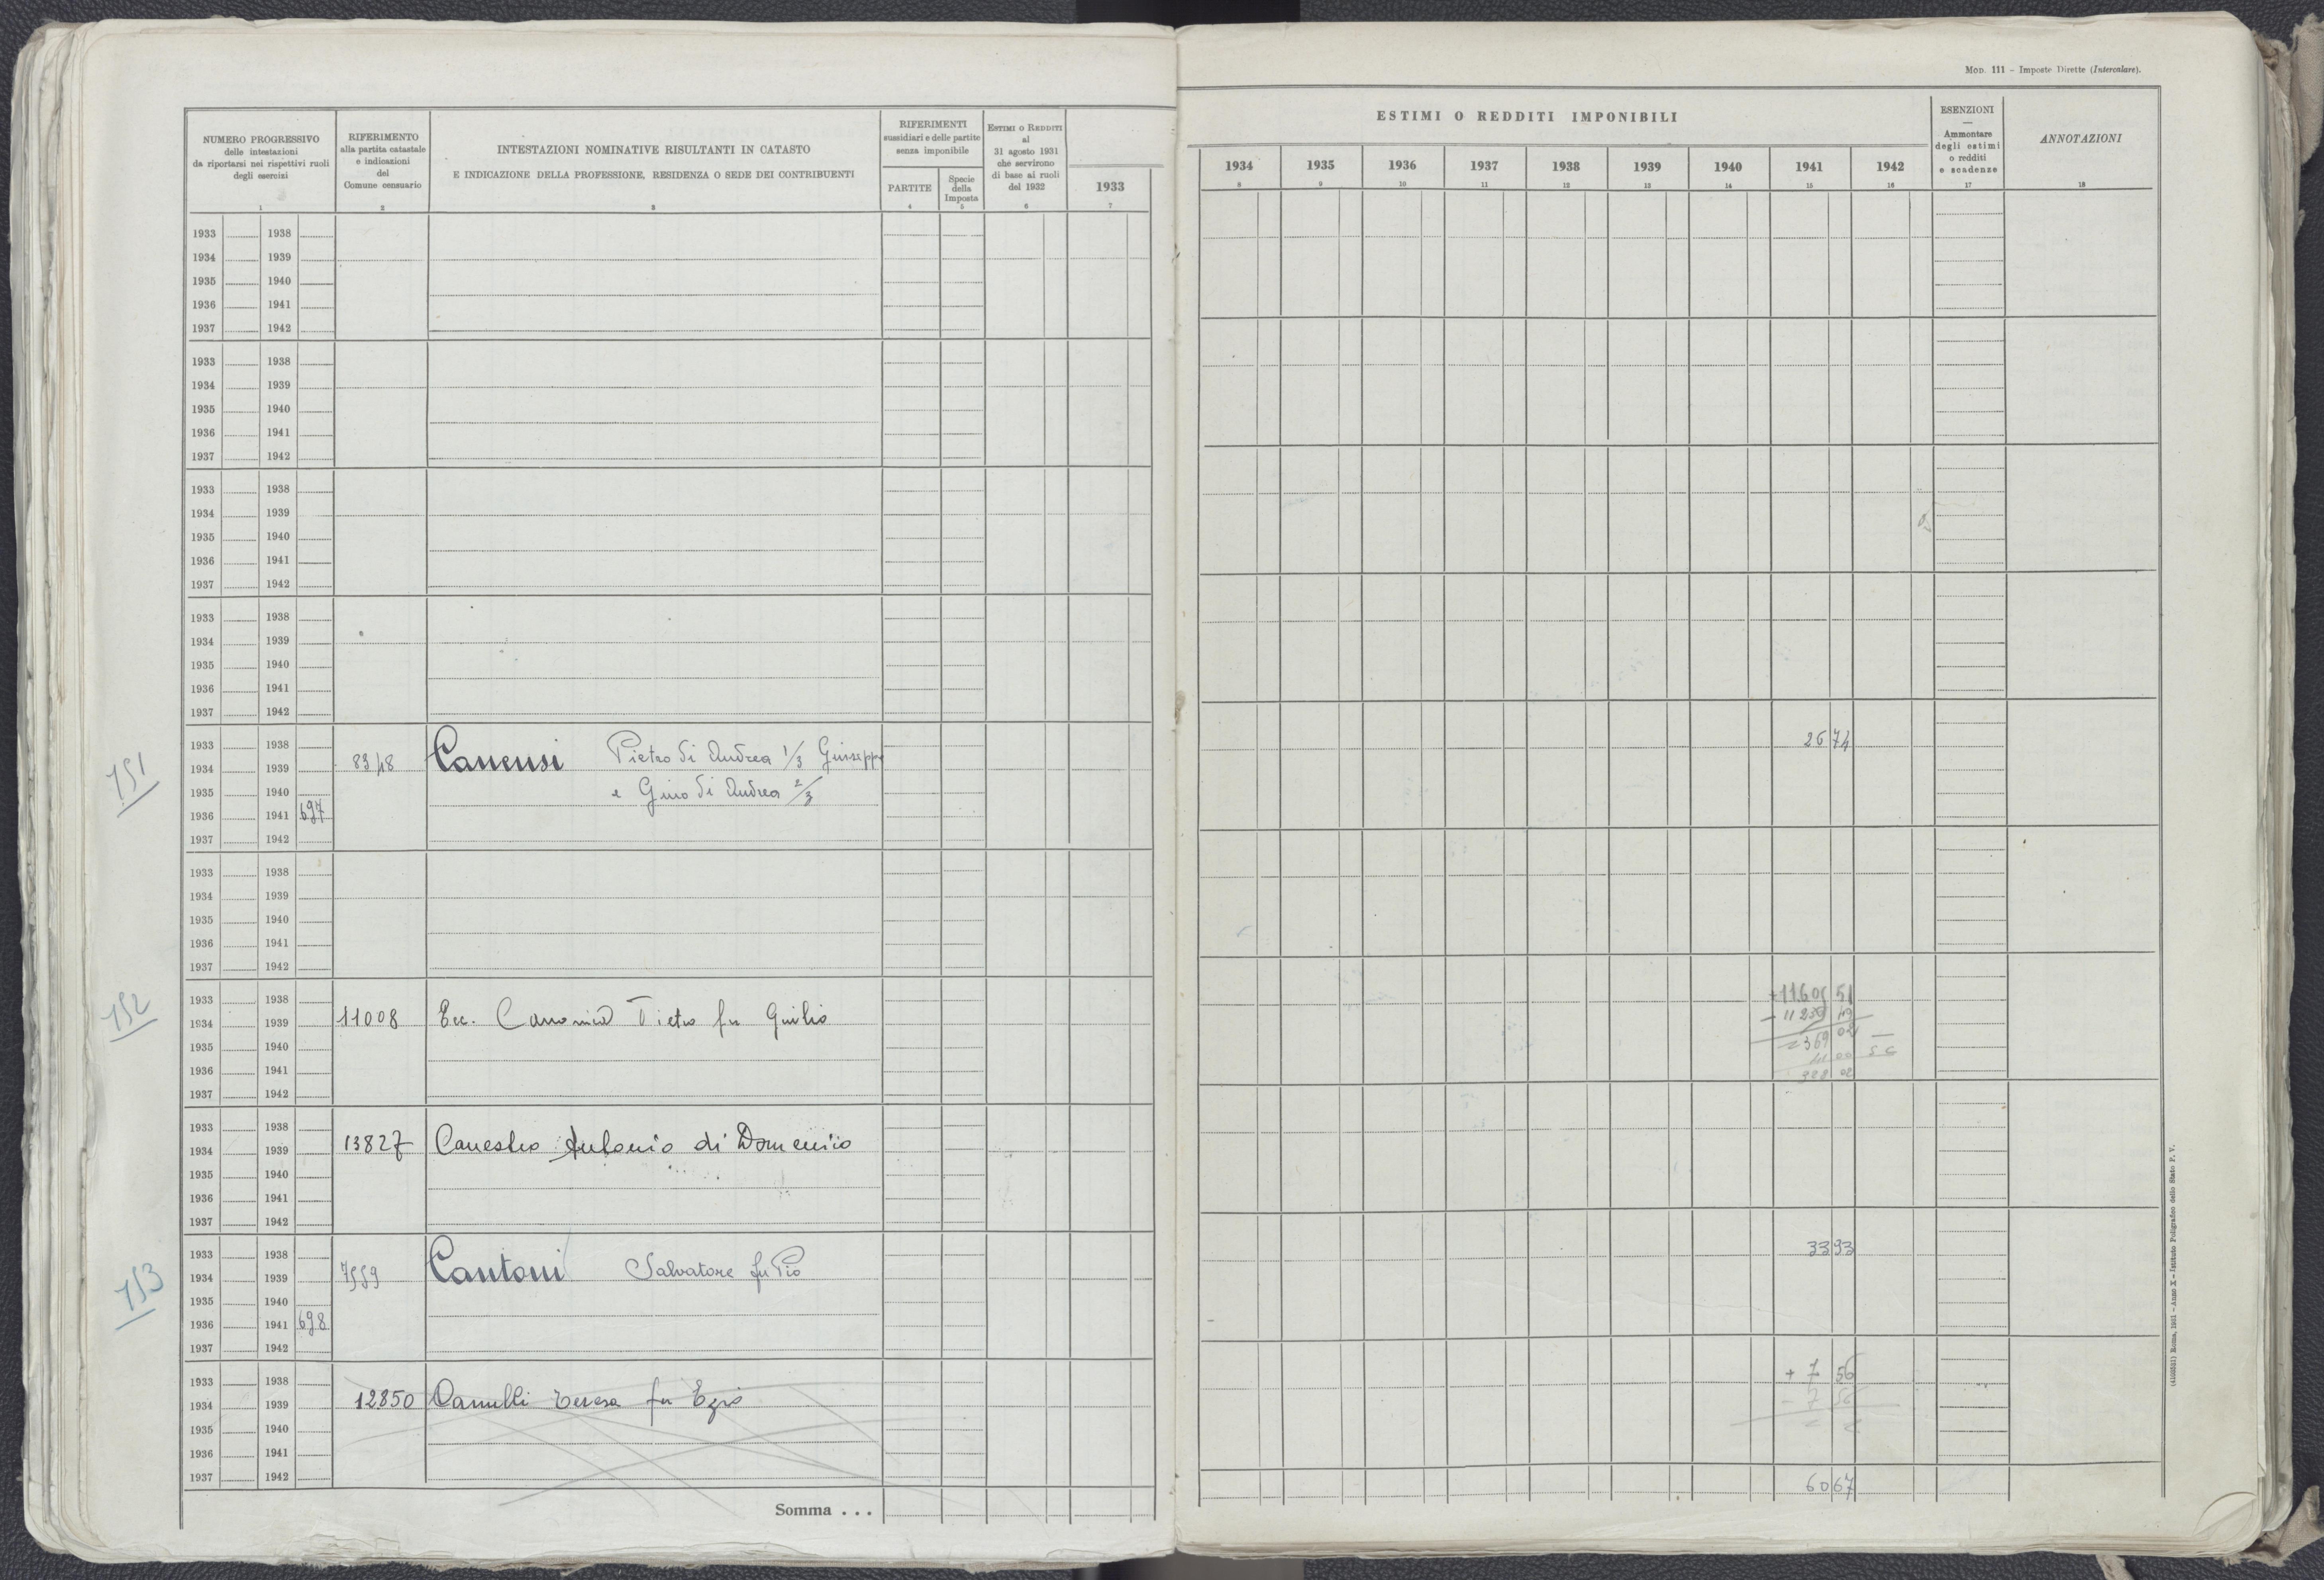 MOD. 111 – Imposte Dirette (Intercalare).
NUMERO PROGRESSIVO
delle intestazioni
da riportarsi nei rispettivi ruoli
degli esercizi
1
RIFERIMENTO
alla partita catastale
e indicazioni
del
Comune censuario
2
INTESTAZIONI NOMINATIVE RISULTANTI IN CATASTO
E INDICAZIONE DELLA PROFESSIONE, RESIDENZA O SEDE DEI CONTRIBUENTI
3
RIFERIMENTI
sussidiari e delle partite
senza imponibile
PARTITE
4
Specie
della
Imposta
5
ESTIMI O REDDITI
al
31 agosto 1931
che servirono
di base ai ruoli
del 1932
6
1933
7
ESTIMI O REDDITI IMPONIBILI
1934 1935 1936 1937 1938 1939 1940 1941 1942
8 9 10 11 12 13 14 15 16
ESENZIONI
—
Ammontare
degli estimi
o redditi
e scadenze
17
ANNOTAZIONI
18
1933 1938
1934 1939
1935 1940
1936 1941
1937 1942
1933 1938
1934 1939
1935 1940
1936 1941
1937 1942
1933 1938
1934 1939
1935 1940
1936 1941
1937 1942
1933 1938
1934 1939
1935 1940
1936 1941
1937 1942
751
1933 1938 2674
1934 1939 8348 Canensi Pietro di Andrea 1/3 Giuseppe
1935 1940 e Gino di Andrea 2/3
1936 1941 697
1937 1942
1933 1938
1934 1939
1935 1940
1936 1941
1937 1942
752
1933 1938
1934 1939 11008 Pietro fu Giulio
1935 1940 369 02
1936 1941 41 00
1937 1942 328 02
1933 1938
1934 1939 13827 Canestro Antonio di Domenico
1935 1940
1936 1941
1937 1942
753
1933 1938 3393
1934 1939 7559 Cantoni Salvatore fu Pio
1935 1940
1936 1941 698
1937 1942
1933 1938 + 7 56
1934 1939 12850 Teresa fu Ezio - 7 56
1935 1940
1936 1941
1937 1942
Somma . . . 6067
(4103521) Roma, 1931 – Anno X – Istituto Poligrafico dello Stato P. V.